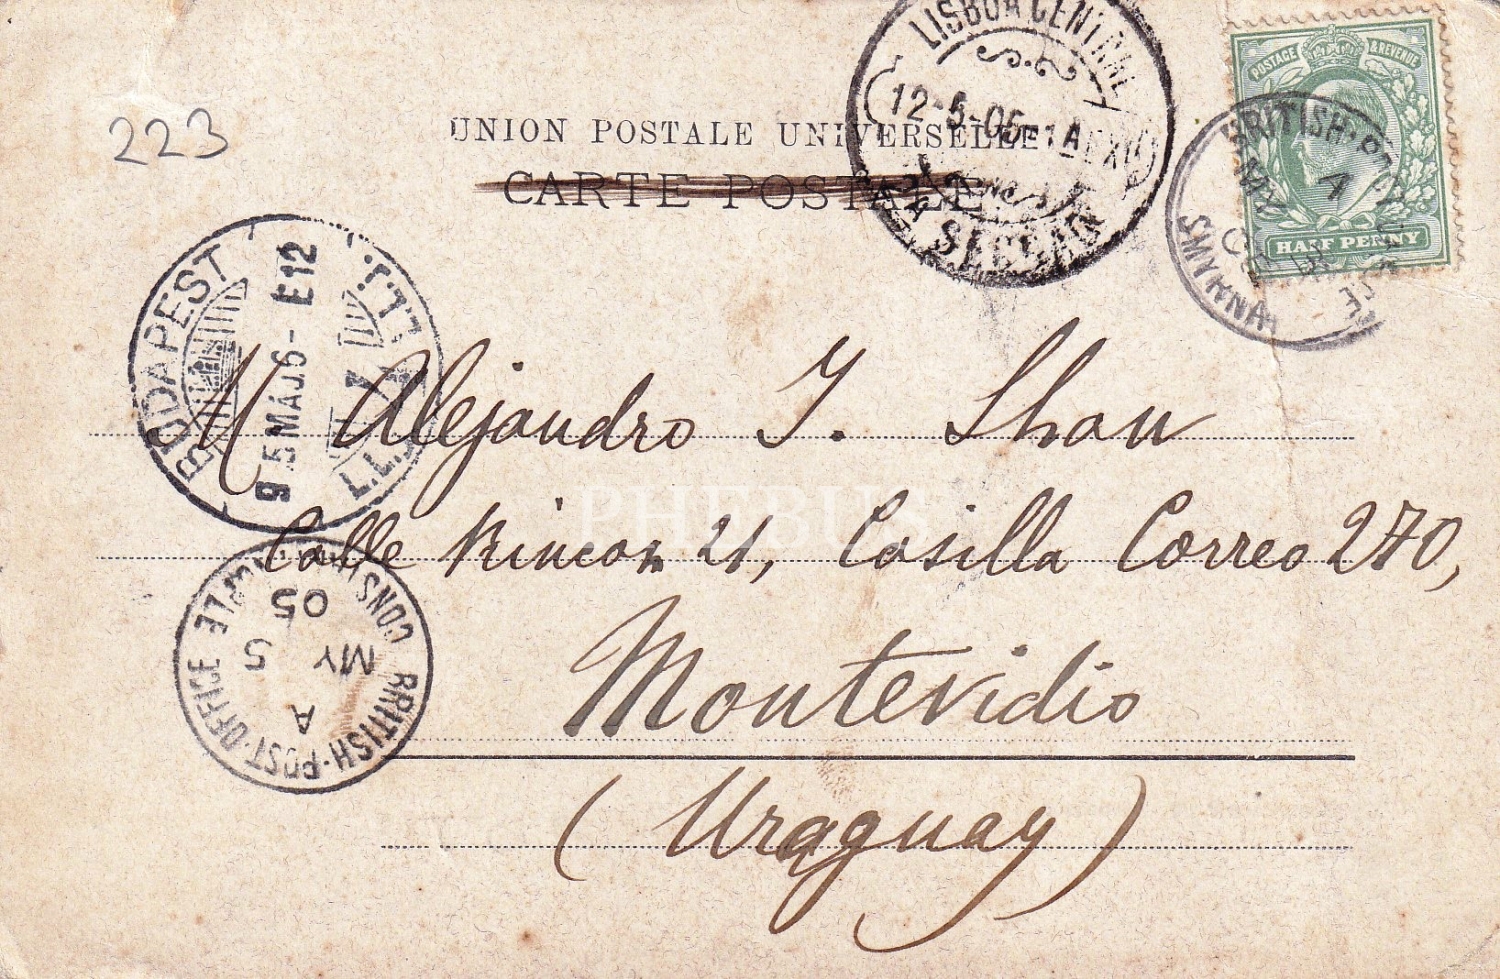 223
UNION POSTALE UNIVERSELLE
CARTE POSTALE
LISBOA CENTRAL
12-5-05-1A
SECÇÃO
POSTAGE & REVENUE
HALF PENNY
BRITISH
SMYRNA
BUDAPEST
905 MÁJ.6- E12
M Alejandro J. Shaw
Calle Rincon 21, Casilla Correo 270,
Montevidio
(Uraguay)
PHEBUS
BRITISH·POST·OFFICE
A
MY 5
05